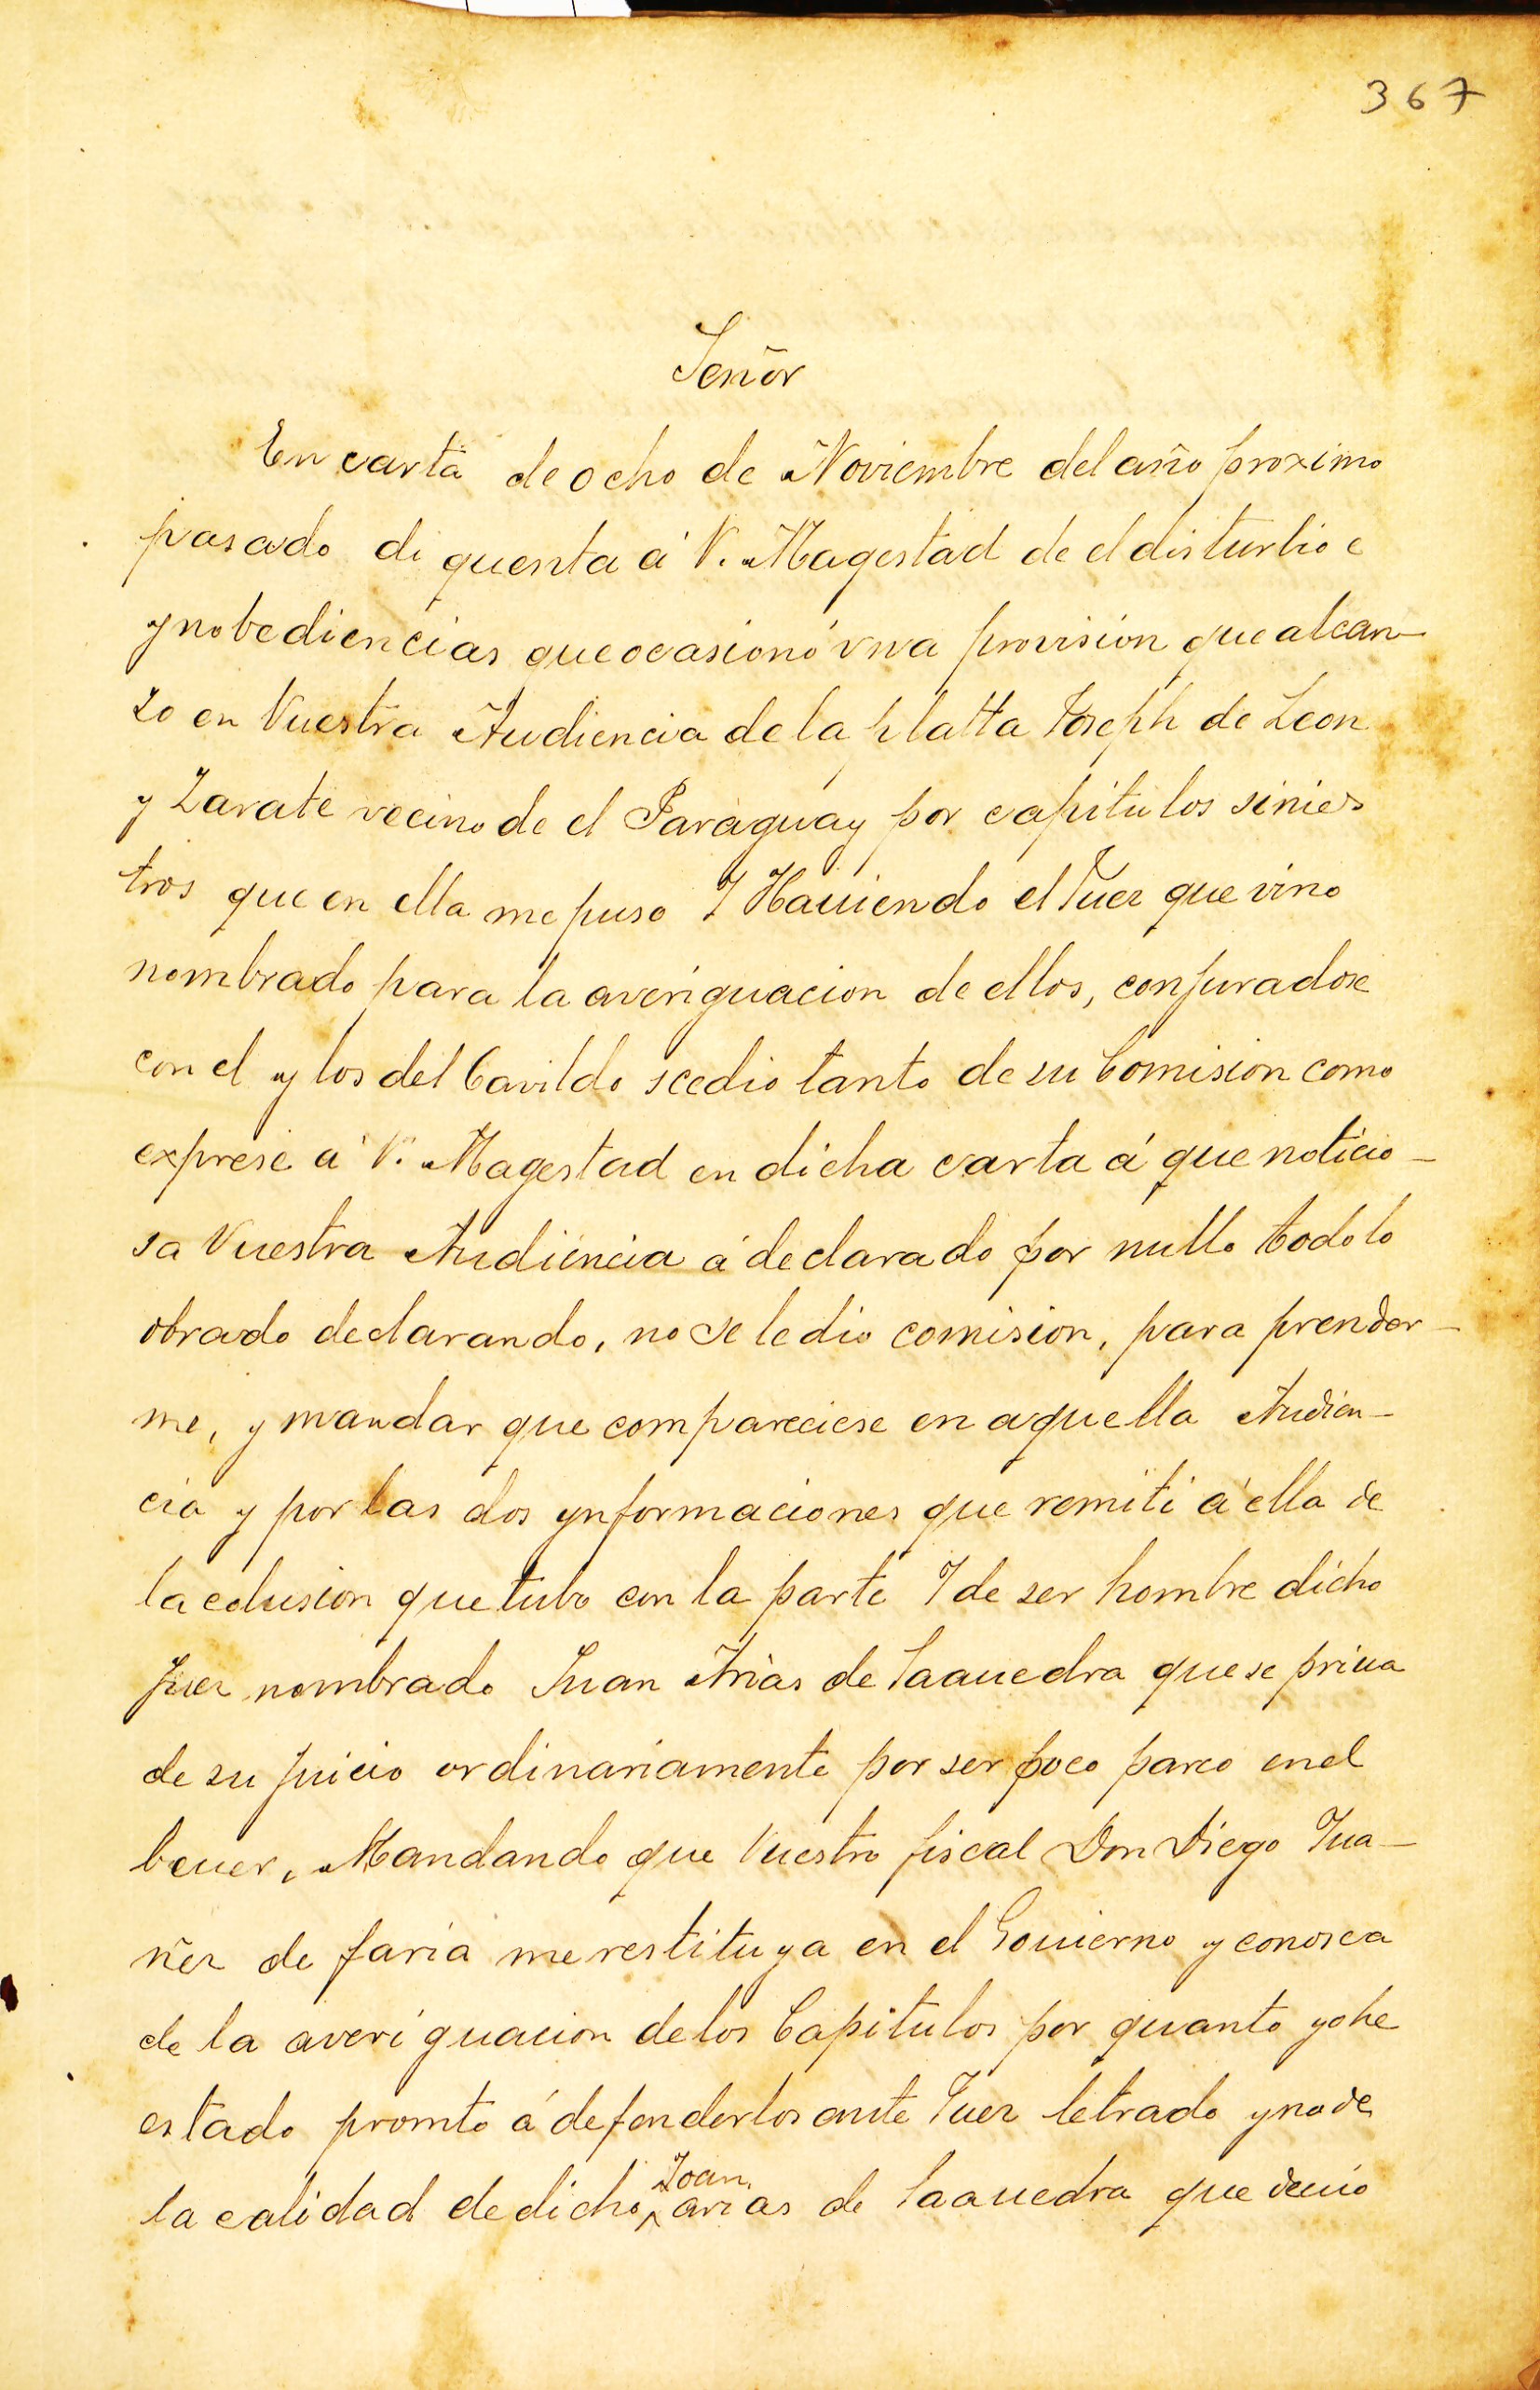 367
Señor
En carta de ocho de Noviembre del año proximo
pasado di quenta á V. Magestad de el disturbio e
ynobediencias que ocasionó vna provision que alcan-
zo en Vuestra Audiencia de la platta Joseph de Leon
y Zarate vecino de el Paraguay por capitulos sinies
tros que en ella me puso Y Hauiendo el Juez que vino
nombrado para la averiguacion de ellos, conjuradose
con el y los del Cavildo scedio tanto de su Comision como
exprese á V. Magestad en dicha carta á que noticio-
sa Vuestra Audiencia á declarado por nullo todo lo
obrado declarando, no se le dio comision, para prender-
me, y mandar que compareciese en aquella Audien-
cia y por las dos ynformaciones que remiti á ella de
la colusion que tubo con la parte Y de ser hombre dicho
Juez nombrado Juan Arias de Saauedra que se priua
de su juicio ordinariamente por ser poco parco en el
beuer, Mandando que Vuestro fiscal Don Diego Yua-
ñez de faria me restituya en el Gouierno y conosca
de la averiguacion de los Capitulos por quanto yo he
estado promto á defenderlos ante Juez letrado y no de
la calidad de dicho Joan arias de Saauedra que deuio